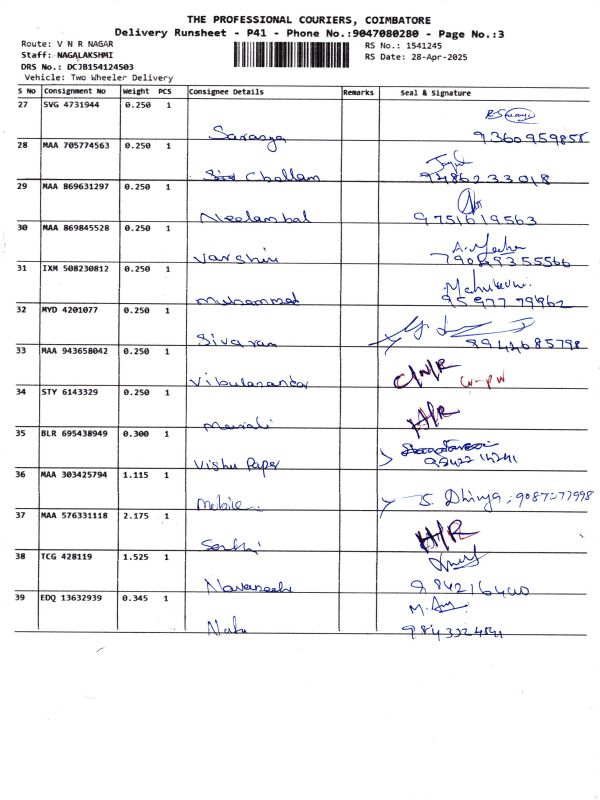 THE PROFESSIONAL COURIERS, COIMBATORE
Delivery Runsheet - P41 - Phone No.:9047080280 - Page No.:3
Route: V N R NAGAR
RS No.: 1541245
Staff: NAGALAKSHMI
RS Date: 28-Apr-2025
DRS No.: DCJB154124503
Vehicle: Two Wheeler Delivery
S No Consignment No Weight PCS Consignee Details Remarks Seal & Signature
27 SVG 4731944 0.250 1
Sarasya 9360959858
28 MAA 705774563 0.250 1
Challam 9486233018
29 MAA 869631297 0.250 1
Neelambal 9751619563
30 MAA 869845528 0.250 1
Varshini
31 IXM 508230812 0.250 1
Muhammed 9597779962
32 MYD 4201077 0.250 1
Sivaram 9942685798
33 MAA 943658042 0.250 1
C/N/R
34 STY 6143329 0.250 1
Murali H/R
35 BLR 695438949 0.300 1
Vishu Paper
36 MAA 303425794 1.115 1
Mobile S. Dhivya
37 MAA 576331118 2.175 1
H/R
38 TCG 428119 1.525 1
Navaneeth
39 EDQ 13632939 0.345 1